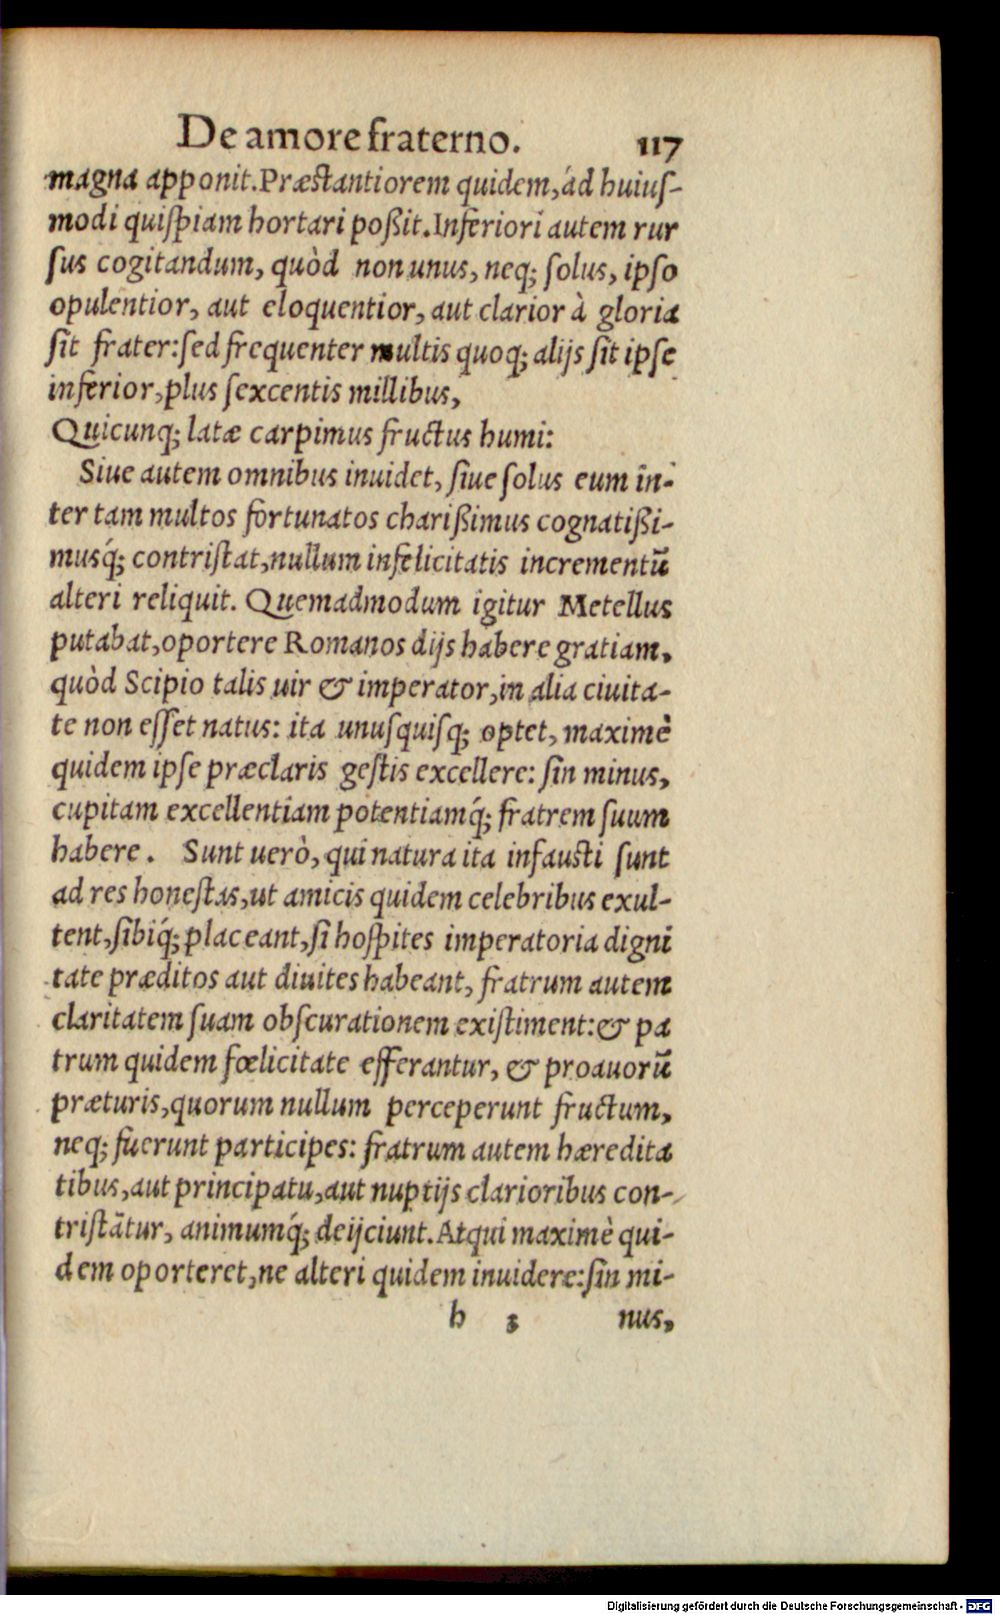 De amore fraterno. 117
magna apponit. Præstantiorem quidem, ád huiuſ-
modi quiſpiam hortari poßit. Inferiori autem rur
ſus cogitandum, quòd non unus, neq; ſolus, ipſo
opulentior, aut eloquentior, aut clarior à gloria
ſit frater: ſed frequenter multis quoq; alijs ſit ipſe
inferior, plus ſexcentis millibus,
Quicunq; latæ carpimus fructus humi:
Siue autem omnibus inuidet, ſiue ſolus eum in-
ter tam multos fortunatos charißimus cognatißi-
musq́; contriſtat, nullum infelicitatis incrementū
alteri reliquit. Quemadmodum igitur Metellus
putabat, oportere Romanos dijs habere gratiam,
quòd Scipio talis uir & imperator, in alia ciuita-
te non eſſet natus: ita unuſquiſq; optet, maximè
quidem ipſe præclaris geſtis excellere: ſin minus,
cupitam excellentiam potentiamq́; fratrem ſuum
habere. Sunt uerò, qui natura ita infauſti ſunt
ad res honeſtas, ut amicis quidem celebribus exul-
tent, ſibiq́; placeant, ſi hoſpites imperatoria digni
tate præditos aut diuites habeant, fratrum autem
claritatem ſuam obſcurationem exiſtiment: & pa
trum quidem fœlicitate efferantur, & proauorū
præturis, quorum nullum perceperunt fructum,
neq; fuerunt participes: fratrum autem hæredita
tibus, aut principatu, aut nuptijs clarioribus con-
triſtātur, animumq́; deijciunt. Atqui maximè qui-
dem oporteret, ne alteri quidem inuidere: ſin mi-
h 3 nus,
Digitalisierung gefördert durch die Deutsche Forschungsgemeinschaft - DFG